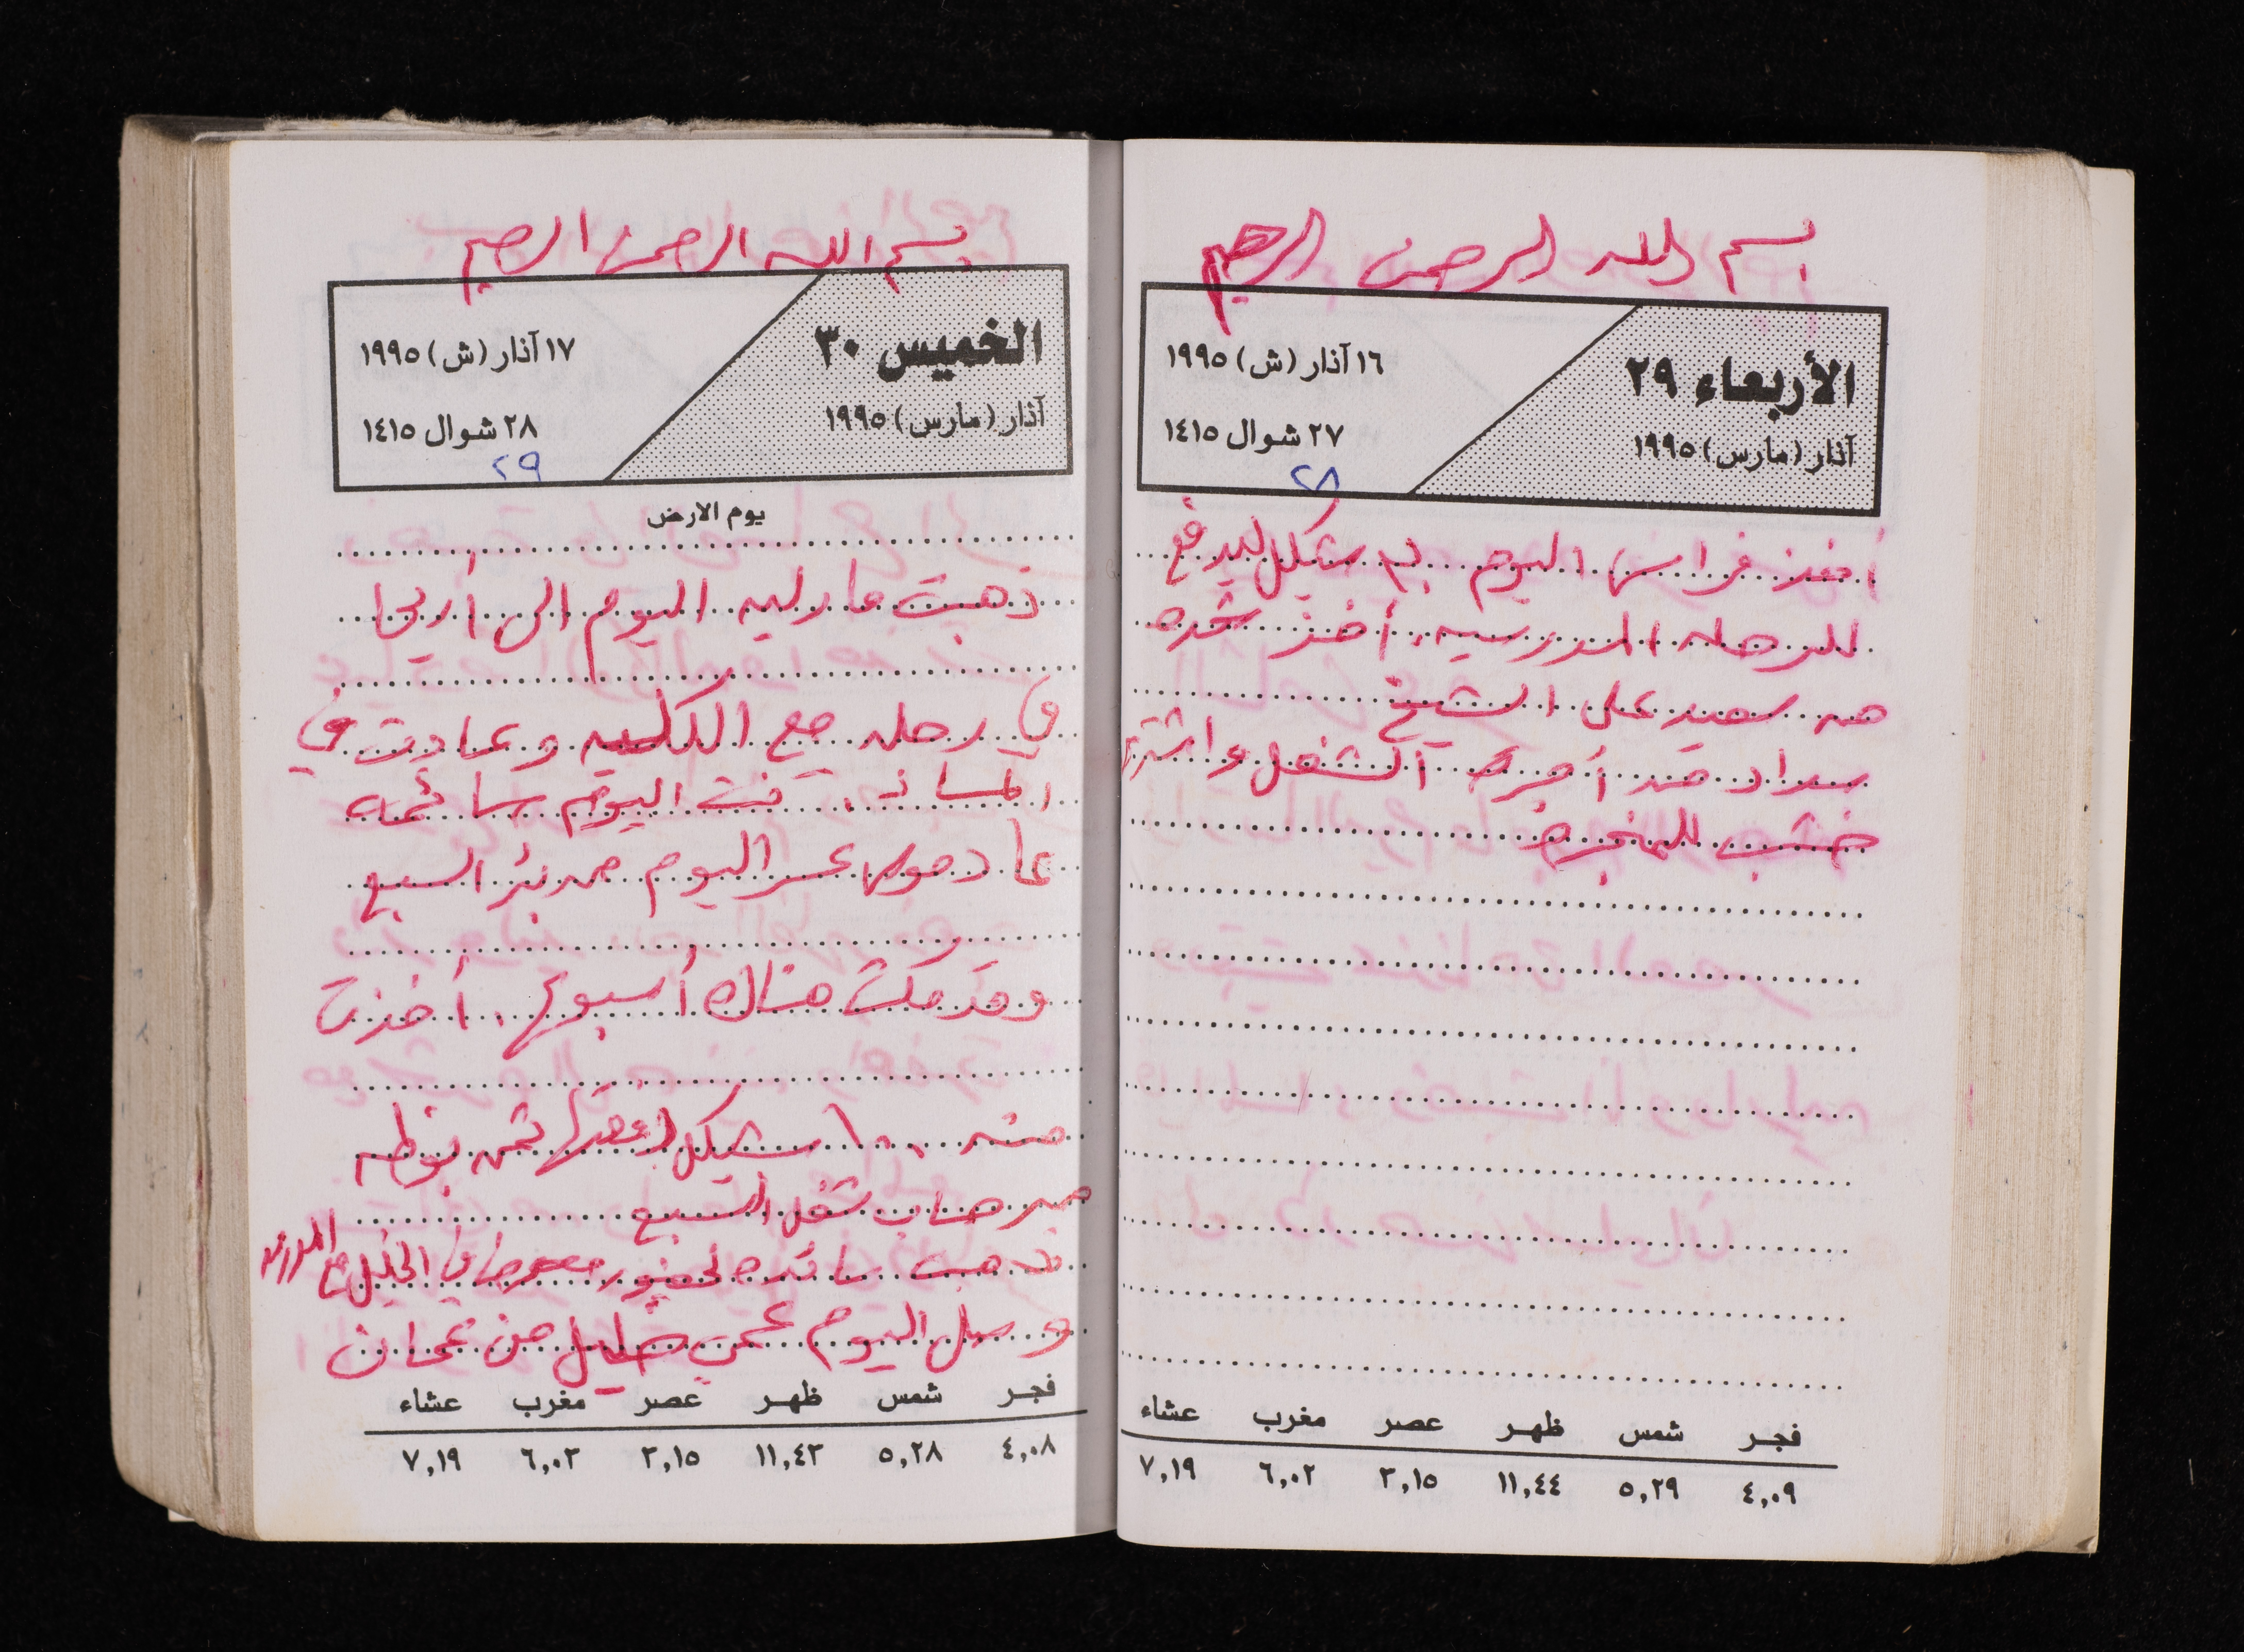 بسم الله الرحمن الرحيم
الأربعاء ٢٩
آذار (مارس) ١٩٩٥
١٦ آذار (ش) ١٩٩٥
٢٧ شوال ١٤١٥
٢٨
أخذ فراس اليوم شيكل ليدفع
للرحله المدرسيه. أخذ شحده
من سعيد على الشيخ
سداد من أجرة الشغل واشترى
خشب للمنجره
فجر شمس ظهر عصر مغرب عشاء
٤,٠٩ ٥,٢٩ ١١,٤٤ ٣,١٥ ٦,٠٢ ٧,١٩
بسم الله الرحمن الرحيم
الخميس ٣٠
آذار (مارس) ١٩٩٥
١٧ آذار (ش) ١٩٩٥
٢٨ شوال ١٤١٥
٢٩
يوم الارض
ذهبت ماريه اليوم الى أريحا
في رحله مع الكليه وعادت في
المساء. كنت اليوم صائمه
عاد موسى عصر اليوم من بئر السبع
وقد مكث هناك أسبوع. أخذت
منه ١٠٠ شيكل ثمن
من حساب شغل السبع
ذهبت لحضور معرض في الخليل مع المدرسه
وصل اليوم عمي خليل من عمان
فجر شمس ظهر عصر مغرب عشاء
٤,٠٨ ٥,٢٨ ١١,٤٣ ٣,١٥ ٦,٠٣ ٧,١٩